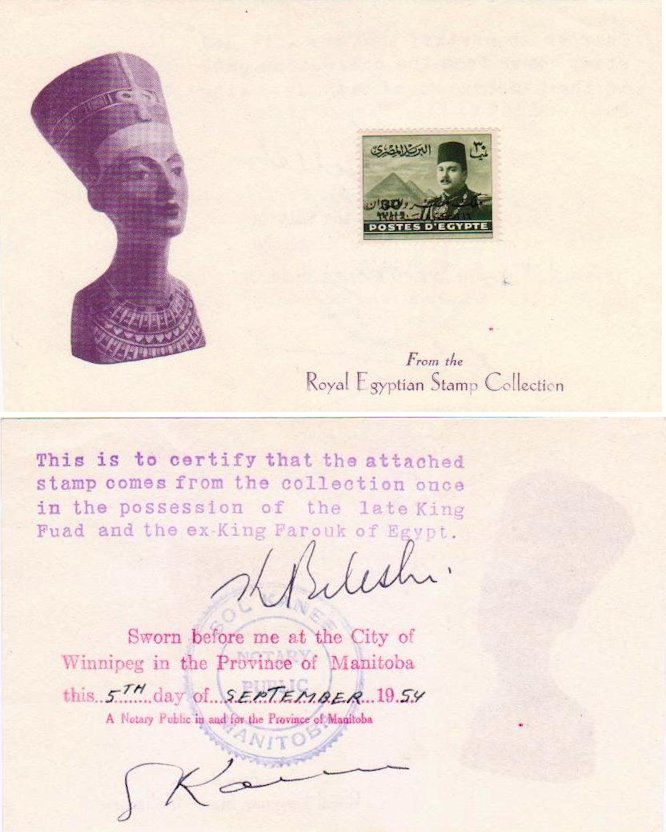 البريد المصرى
٣٠
مليم
30
POSTES D'EGYPTE
From the
Royal Egyptian Stamp Collection
This is to certify that the attached
stamp comes from the collection once
in the possession of the late King
Fuad and the ex-King Farouk of Egypt.
K Bileski.
SOL KANEE
NOTARY
PUBLIC
MANITOBA
Sworn before me at the City of
Winnipeg in the Province of Manitoba
this...5TH.....day of...SEPTEMBER...19.54
A Notary Public in and for the Province of Manitoba
S Kanee